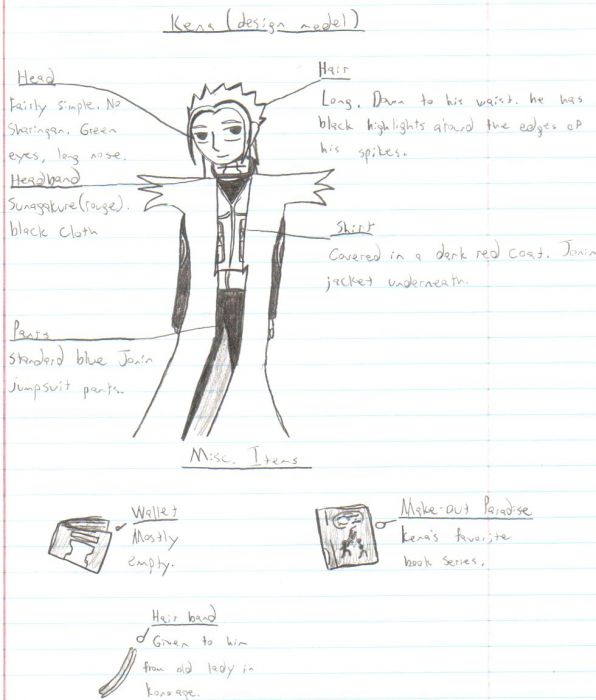 Kena (design model)
Head
Fairly simple. No
Sharingan. Green
eyes, long nose.
Hair
Long. Down to his waist. he has
black highlights around the edges of
his spikes.
Headband
Sunagakure (rouge).
black cloth
Shirt
Covered in a dark red coat. Jonin
jacket underneath.
Pants
standard blue Jonin
jumpsuit pants.
Misc. Items
Wallet
Mostly
empty.
Make-out Paradise
Kena's favorite
book series.
Hair band
Given to him
from old lady in